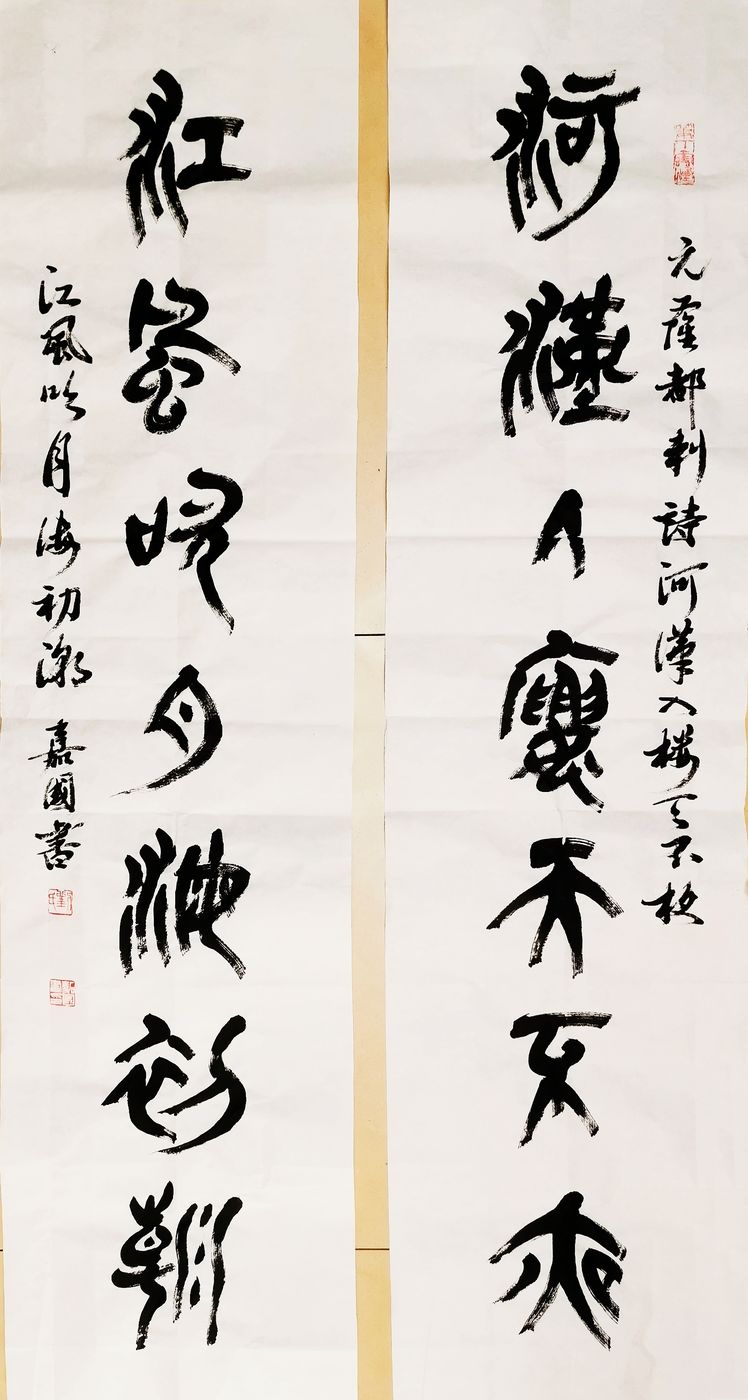 元薩都剌詩河漢入樓天不夜
河漢入樓天不夜
江風吹月海初潮
江風吹月海初潮 嘉國書